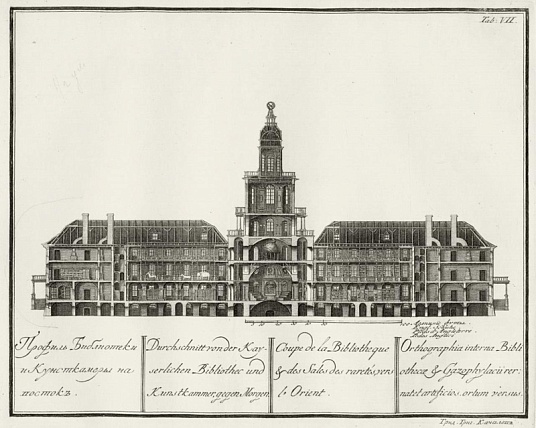 Tab. VII.
100
Профиль Библиотеки
и Кунсткамеры на
востокъ.
Durchschnitt von der Kay-
serlichen Bibliothec und
Kunstkammer, gegen Morgen.
Coupe de la Bibliotheque
& des Sales des raretés, vers
l'Orient.
Orthographia interna Bibli
othecæ & Gazophylacii rer:
nat: et artificios. ortum versus.
Грид. Григ. Качаловъ.